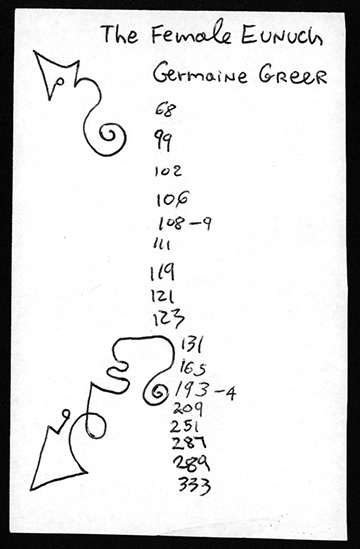 The Female Eunuch
Germaine Greer
68
99
102
106
108-9
111
119
121
123
131
165
193-4
209
251
287
289
333